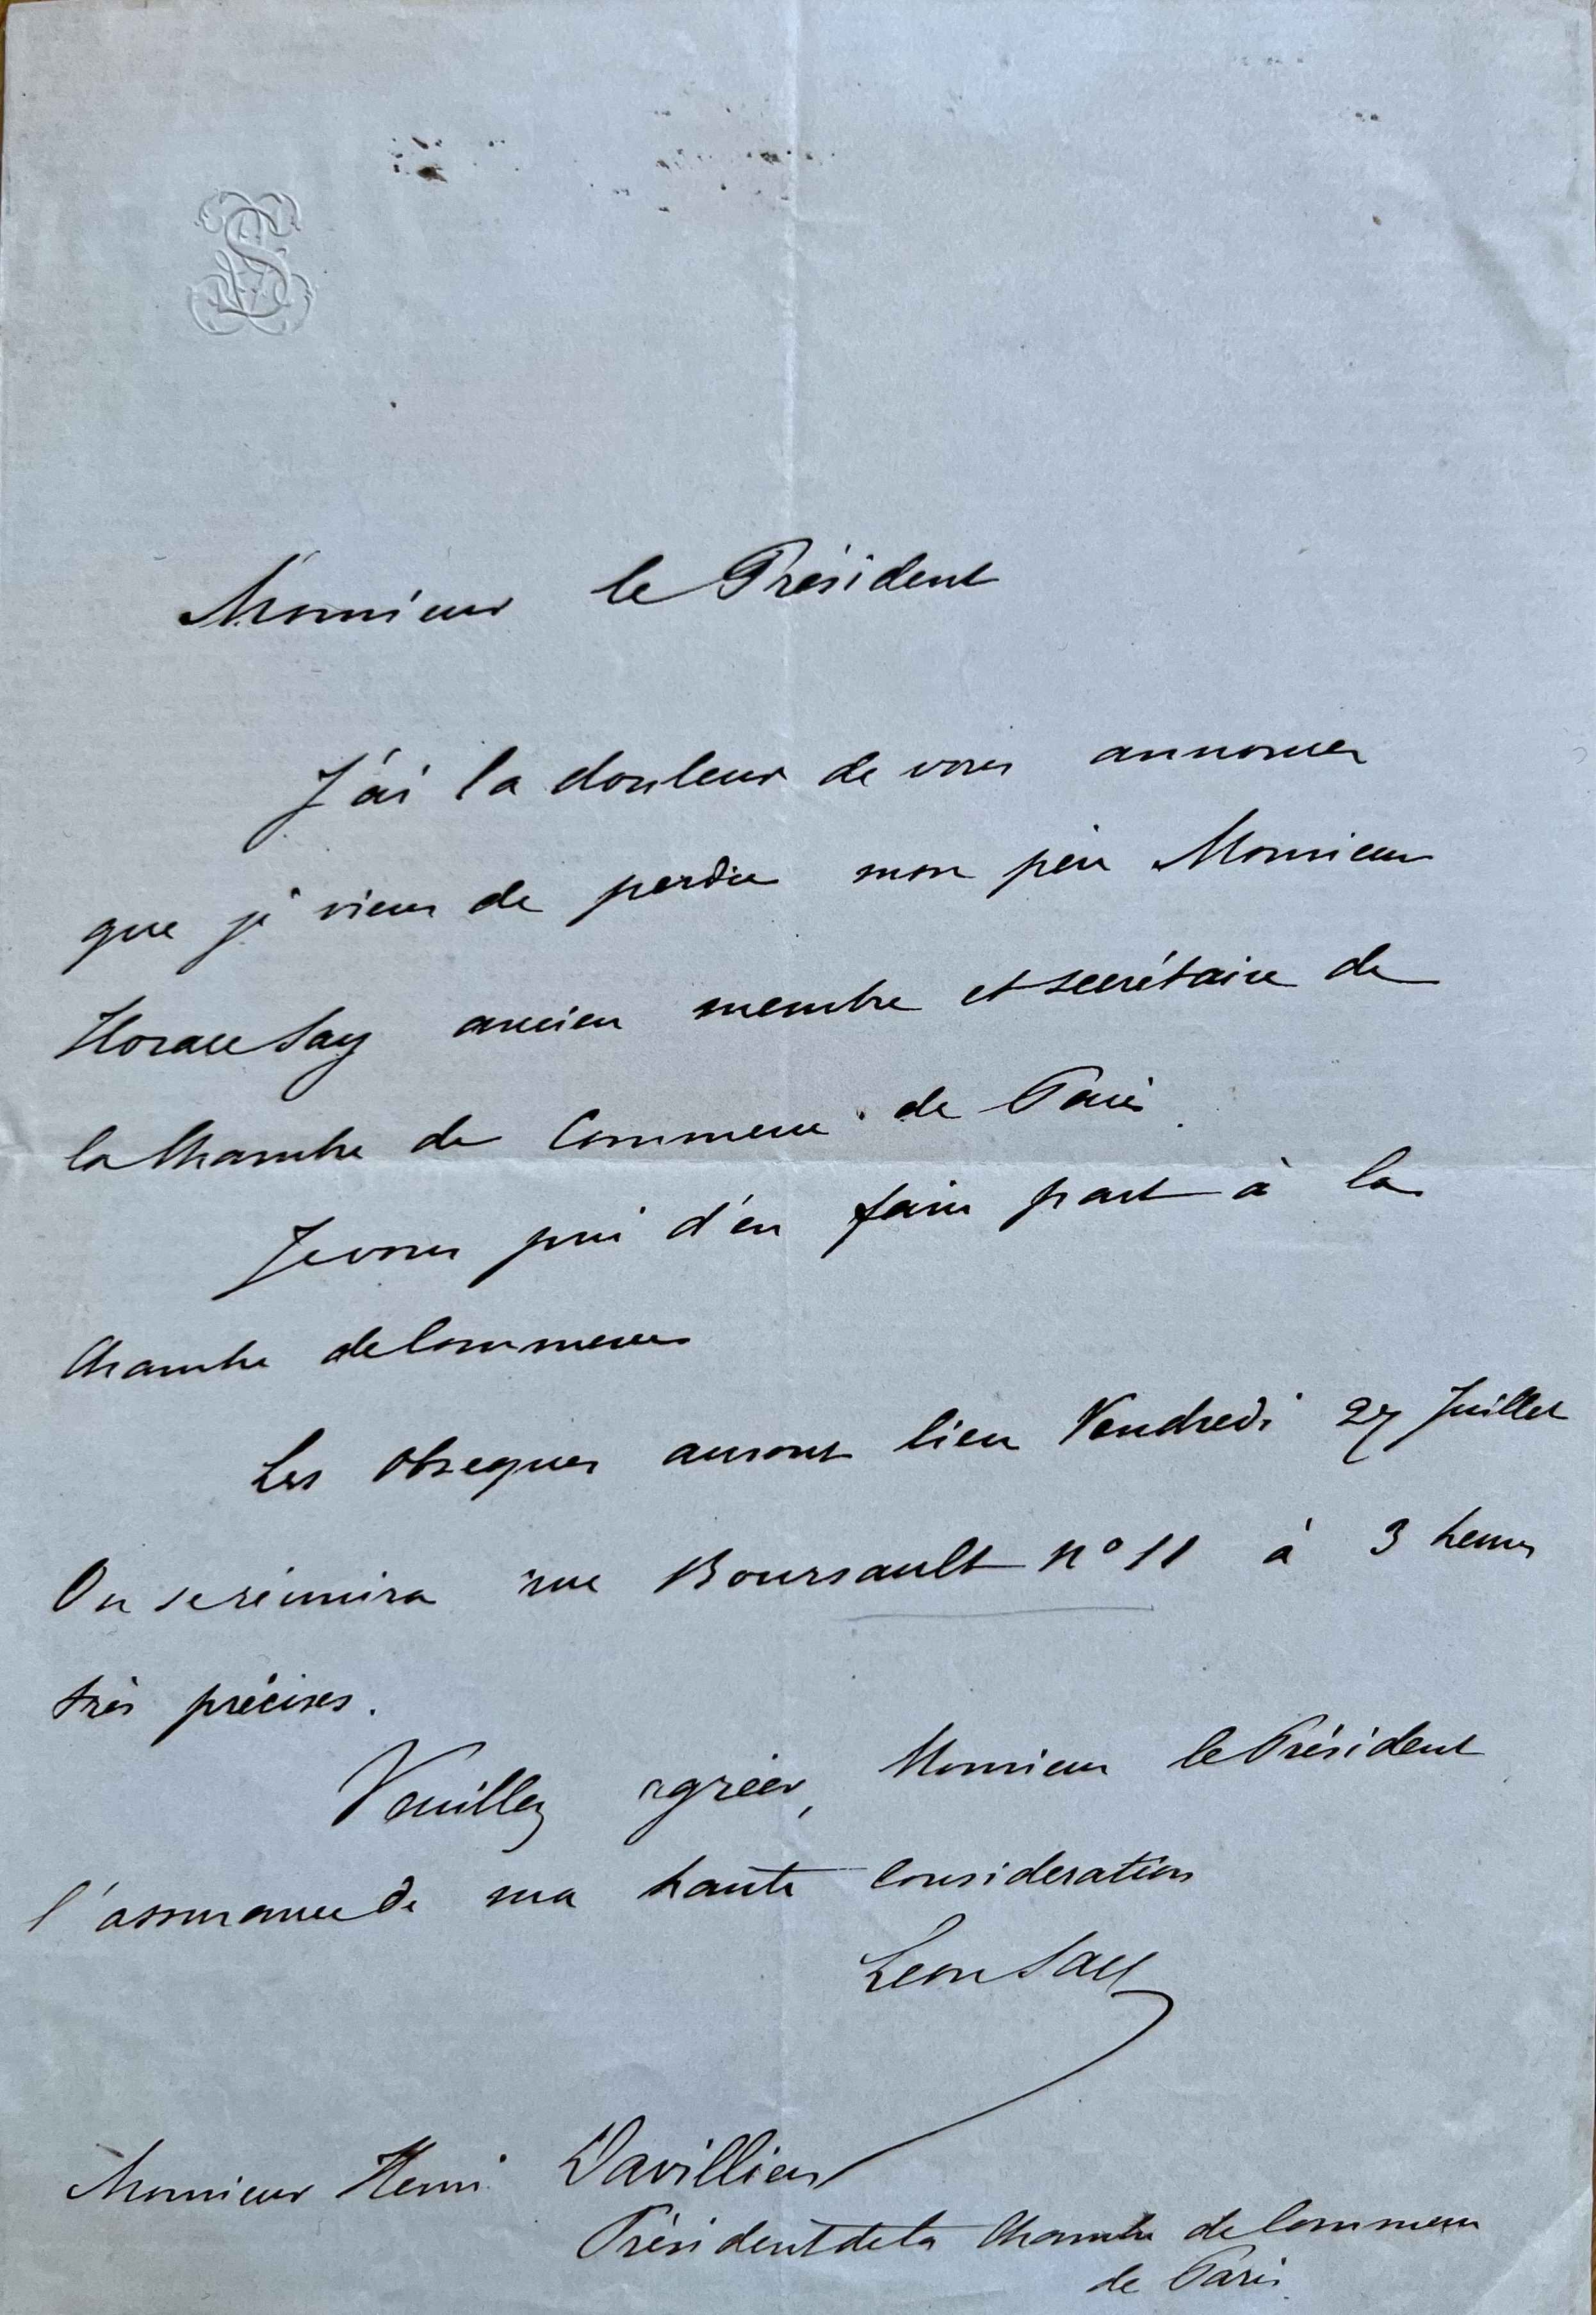 Monsieur le Président
J'ai la douleur de vous annoncer
que je viens de perdre mon père Monsieur
Horace Say ancien membre et secrétaire de
la Chambre de Commerce de Paris.
Je vous prie d'en faire part à la
Chambre de Commerce
Les obseques auront lieu Vendredi 27 Juillet
On se réunira rue Boursault n° 11 à 3 heures
très précises.
Veuillez agréer, Monsieur le Président
l'assurance de ma haute consideration
Leon Say
Monsieur Henri Davillier
Président de la Chambre de Commerce
de Paris